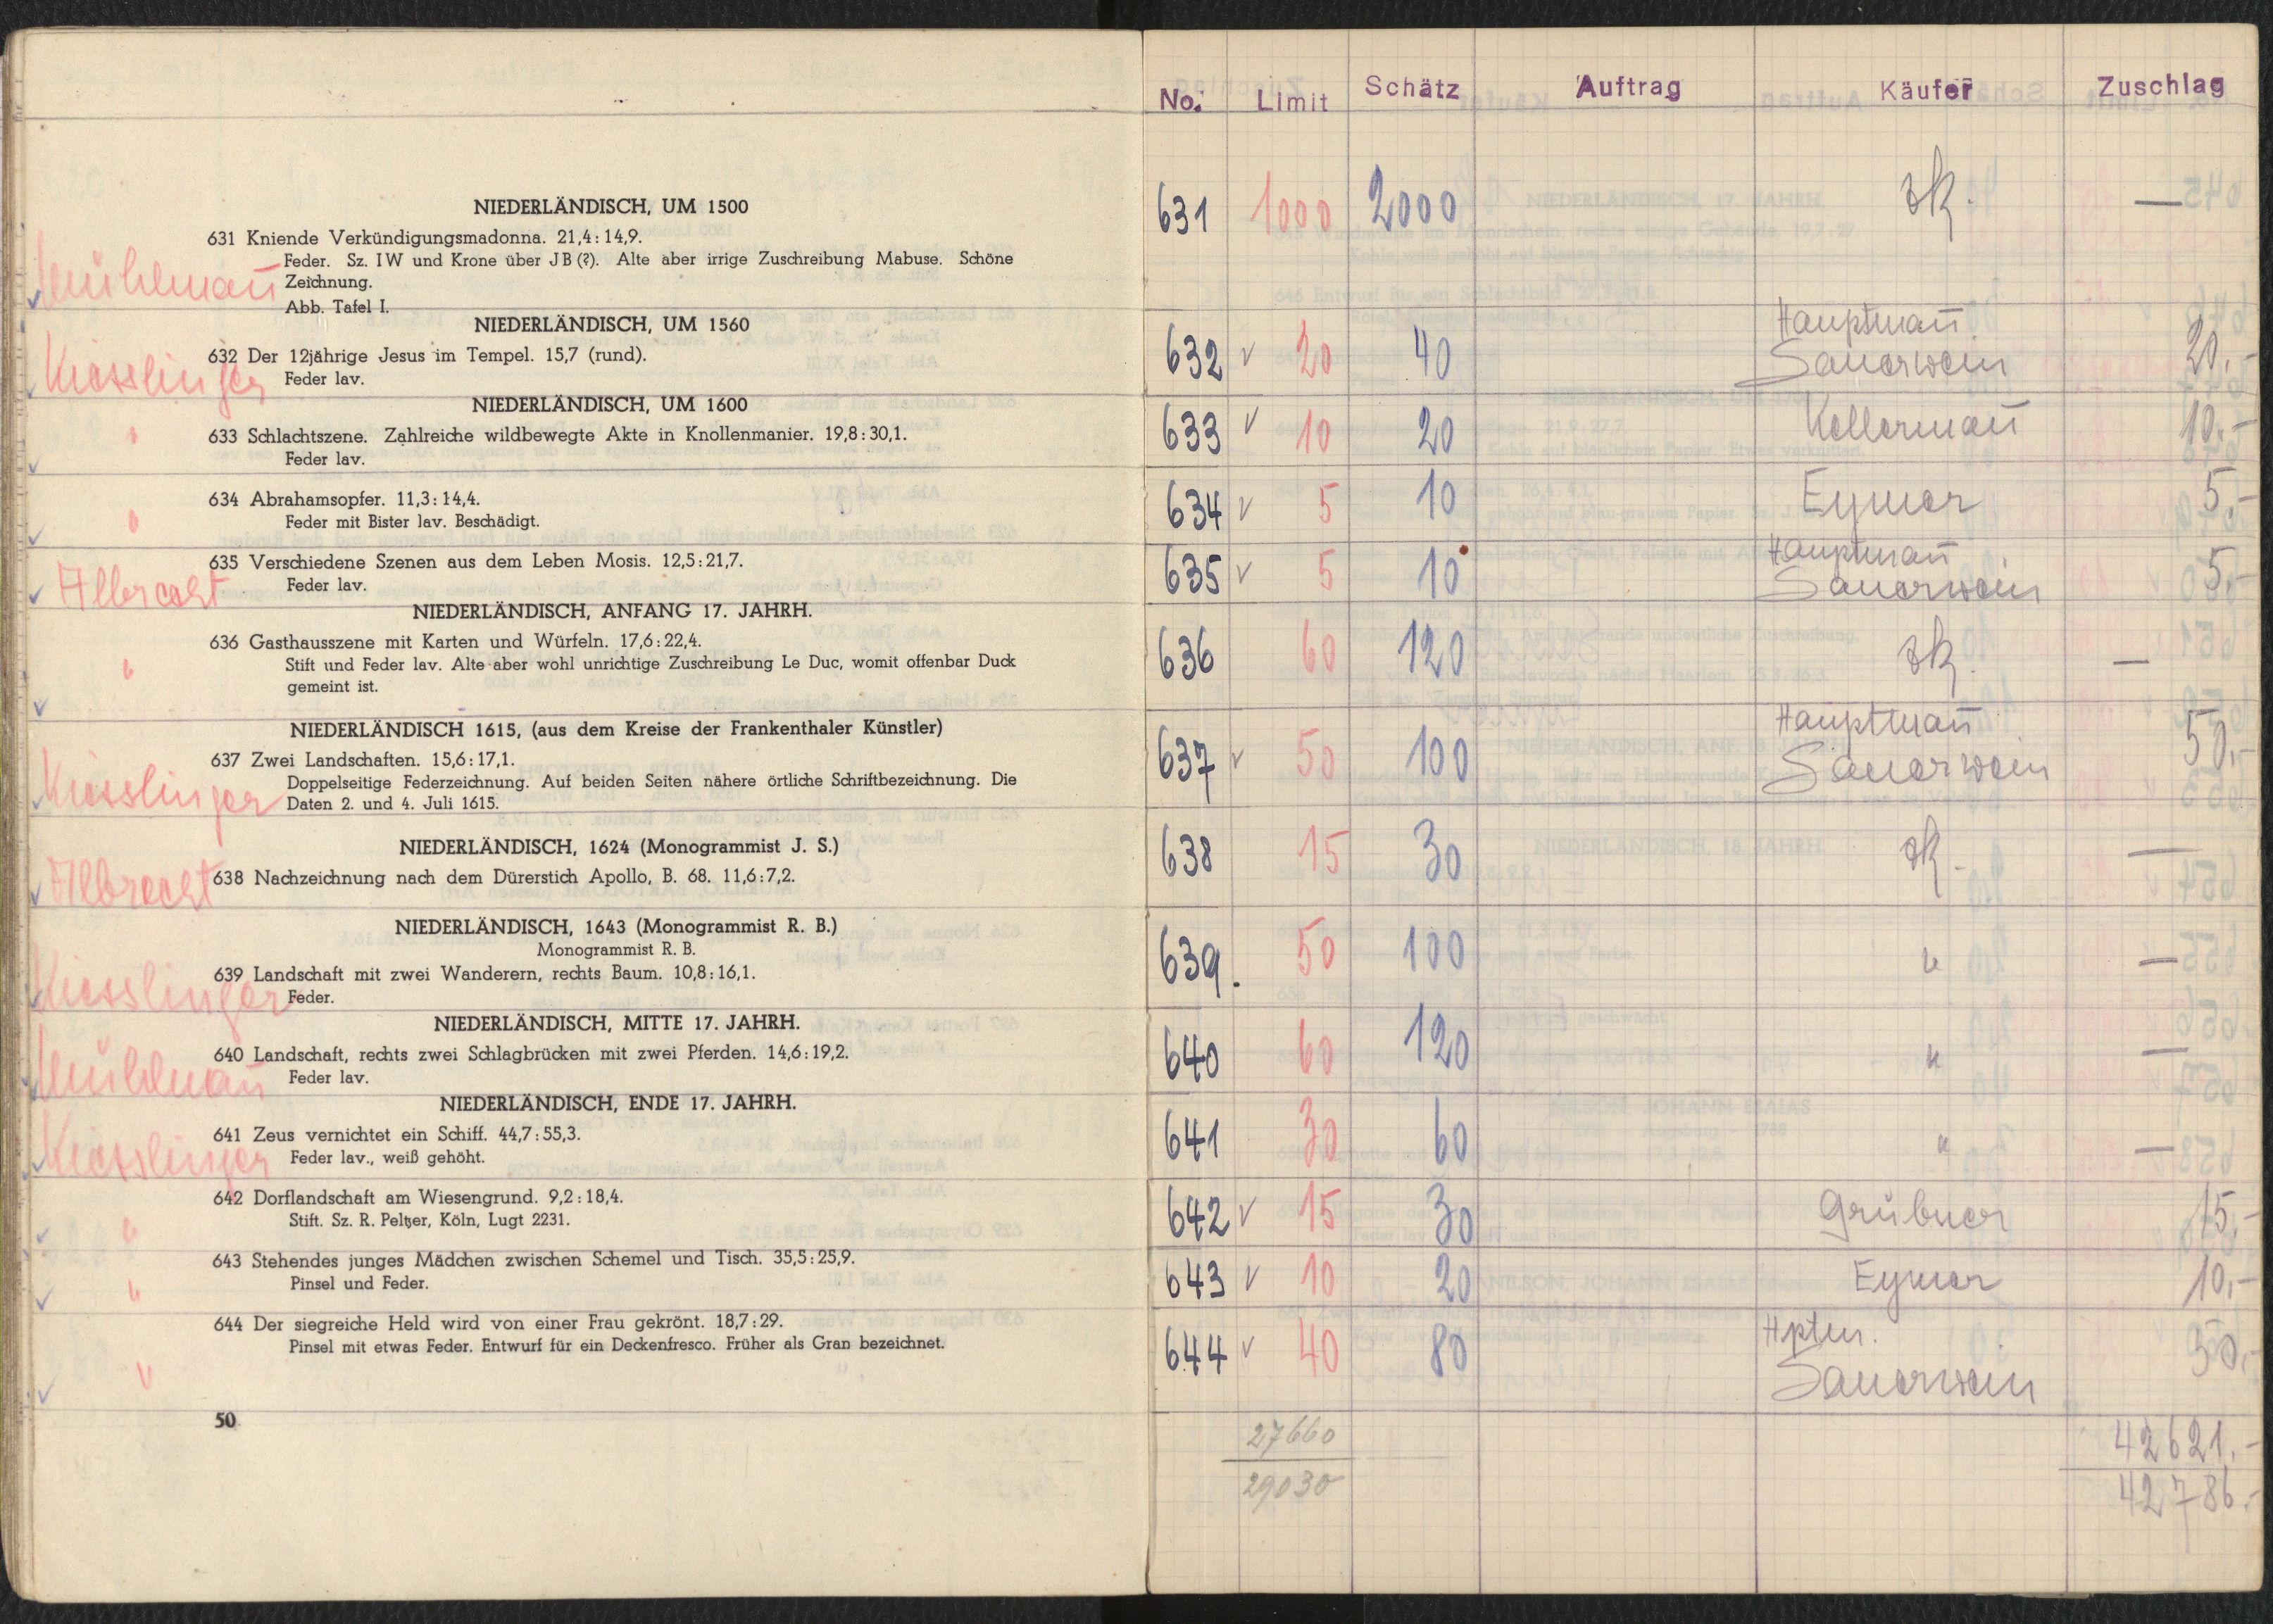 NIEDERLÄNDISCH, UM 1500
631 Kniende Verkündigungsmadonna. 21,4:14,9.
Feder. Sz. IW und Krone über JB (?). Alte aber irrige Zuschreibung Mabuse. Schöne
Mühlmañ Zeichnung.
Abb. Tafel I.
NIEDERLÄNDISCH, UM 1560
632 Der 12jährige Jesus im Tempel. 15,7 (rund).
Kiesslinger Feder lav.
NIEDERLÄNDISCH, UM 1600
" 633 Schlachtszene. Zahlreiche wildbewegte Akte in Knollenmanier. 19,8:30,1.
Feder lav.
634 Abrahamsopfer. 11,3:14,4.
" Feder mit Bister lav. Beschädigt.
635 Verschiedene Szenen aus dem Leben Mosis. 12,5:21,7.
Albrecht Feder lav.
NIEDERLÄNDISCH, ANFANG 17. JAHRH.
636 Gasthausszene mit Karten und Würfeln. 17,6:22,4.
" Stift und Feder lav. Alte aber wohl unrichtige Zuschreibung Le Duc, womit offenbar Duck
gemeint ist.
NIEDERLÄNDISCH 1615, (aus dem Kreise der Frankenthaler Künstler)
637 Zwei Landschaften. 15,6:17,1.
Doppelseitige Federzeichnung. Auf beiden Seiten nähere örtliche Schriftbezeichnung. Die
Kiesslinger Daten 2. und 4. Juli 1615.
NIEDERLÄNDISCH, 1624 (Monogrammist J. S.)
Albrecht 638 Nachzeichnung nach dem Dürerstich Apollo, B. 68. 11,6:7,2.
NIEDERLÄNDISCH, 1643 (Monogrammist R. B.)
Monogrammist R. B.
639 Landschaft mit zwei Wanderern, rechts Baum. 10,8:16,1.
Kiesslinger Feder.
NIEDERLÄNDISCH, MITTE 17. JAHRH.
640 Landschaft, rechts zwei Schlagbrücken mit zwei Pferden. 14,6:19,2.
Mühlmañ Feder lav.
NIEDERLÄNDISCH, ENDE 17. JAHRH.
641 Zeus vernichtet ein Schiff. 44,7:55,3.
Kiesslinger Feder lav., weiß gehöht.
642 Dorflandschaft am Wiesengrund. 9,2:18,4.
" Stift. Sz. R. Peltzer, Köln, Lugt 2231.
643 Stehendes junges Mädchen zwischen Schemel und Tisch. 35,5:25,9.
" Pinsel und Feder.
644 Der siegreiche Held wird von einer Frau gekrönt. 18,7:29.
Pinsel mit etwas Feder. Entwurf für ein Deckenfresco. Früher als Gran bezeichnet.
"
50
No. Limit Schätz Auftrag Käufer Zuschlag
631 1000 2000 zk. —
Hauptmañ
632 √ 20 40 Sauerwein 20.-
633 √ 10 20 Kellermañ 10.-
634 √ 5 10 Eymer 5.-
Hauptmañ
635 √ 5 10 Sauerwein 5.-
636 60 120 zk. —
Hauptmañ
637 √ 50 100 Sauerwein 50.-
638 15 30 zk. —
639. 50 100 " —
640 60 120 " —
641 30 60 " —
642 √ 15 30 Grübner 15.-
643 √ 10 20 Eymer 10.-
Hptm.
644 √ 40 80 Sauerwein 50.-
27660 42621.-
29030 42786.-